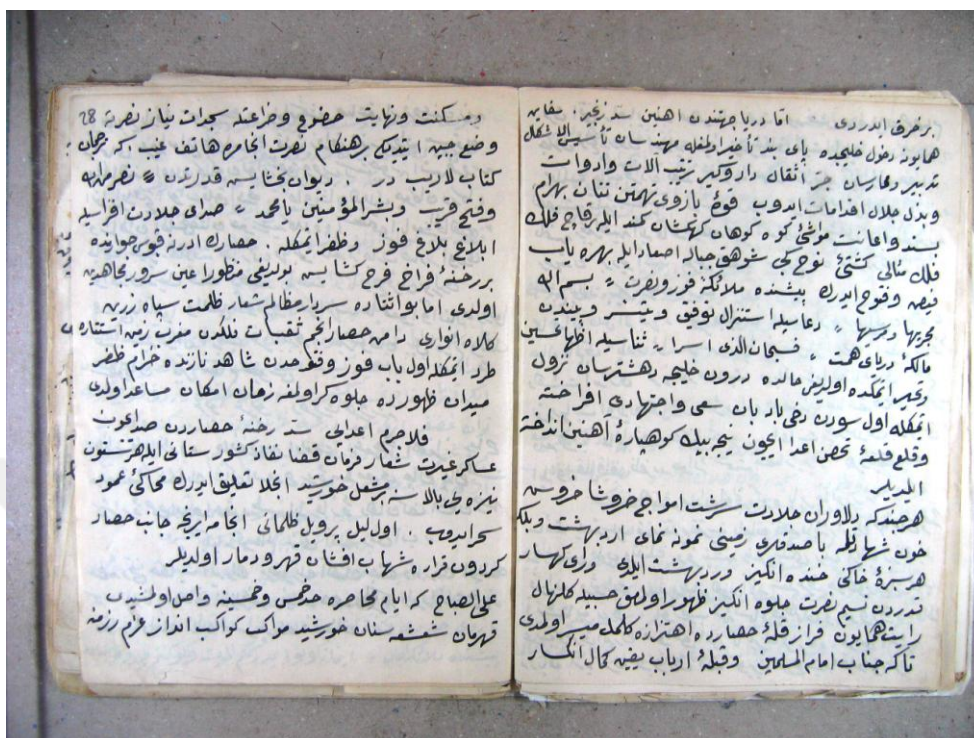 برغرق ايدردى اما دريا جهتندن اهنين سد زنجير سفاين
همايونه دخول خليجده پاى بند تأخير اولمغله مهندسان تأسيس اشكال
تدبير ومحارسان جر اثقال دار وكير ترتيب آلات وادوات
وبذل جلال اقدامات ايدوب قوۀ بازوى تهمتن تنان بهرام
پسند واعانت مواشئ كوه كوهان كهكشان كمند ايله برقاج فلك
فلك مثالى كشتئ نوح كبى شوهق جباله اصعاد ايله بهره ياب
فيض وفتوح ايدرك پيشنده ملائكۀ فوز ونصرت بسم الله
مجريها ومرسها دعاسيله استنزال توفيق وينسر وپسندن
مالكۀ درياى همت فسبحان الذى اسرا ثناسيله اظهار تحسين
وتحير اتمكده اولديغى حالده درون خليجه دهشترسان نزول
اتمكله اول سودن دخى بادبان سعى واجتهادى افراخته
وقلع قلعۀ تحصن اعدا ايچون نيجه بيك كوهپارۀ آهنين انداخته
ايلديلر
هرچندكه دلاوران جلادت سرشت امواج خروشا خروس
خون شهدا ايله باصدقلرى زمينى نمونه نماى ارديبهشت وبلكه
هر سبزۀ خاكنى خنده انكيز ورد بهشت ايلدى وراى كهسار
قدردن نسيم نصرت جلوه انكيز ظهور اولمق حسبيله كلنهال
رايت همايون فراز قلۀ حصارده اهتزازه كلمك ميسر اولمدى
تاكه جناب امام المسلمين وقبلۀ ارباب يقين كمال انكسار
28
ومسكنت ونهايت خضوع وضراعتله سجدات نياز نصرته
وضع جبين ايتديكى برهنكام نصرت انجامده هاتف غيب كه ترجمان
كتاب لاريب در ديوان بخشايش قدرتدن نصر من الله
وفتح قريب وبشر المؤمنين يا محمد صداى جلادت افزاسيله
ابلاغ بلاغ فوز وظفر اتمكله حصارك ادرنه قپوسى جوارنده
بر رخنۀ فراخ فرح كشايش بولديغى منظور اعين سرور مجاهدين
اولدى اما بو اثناده سردار مظالم شعار ظلمت سپاه زرين
كلاه انوارى دامن حصار انجم ثقبات فلكدن مغرب زمين استتاره
طرد اتمكله اول باب فوز وفتوحدن شاهد نازنده خرام ظفر
ميدان ظهورده جلوه كر اولمغه زمان امكان مساعد اولمدى
فلا جرم اعداى سد رخنۀ حصاردن صداعون
عساكر غيرت شعار فرمان قضا نفاذ كشورستانى ايله هر ستون
نيزه لرى بالاسنه برمشعل خورشيد انجلا تعليق ايدرك محاكئ عمود
سحر ايدوب اول ليل پر ويل ظلمانى انجامه ارنجه جانب حصار
كردون قراره شهاب افشان قهر ودمار اولديلر
على الصباح كه ايام محاصره حد خمس وخمسينه واصل اولمشيدى
قهرمان شعشعه سنان خورشيد مواكب كواكب انداز عزم رزمنه